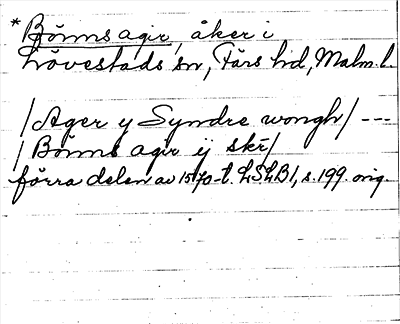 *Bönns agir, åker i
Lövestads sn, Färs hd, Malm. l.
/Ager y Syndre wongh/ ---
/Bönns agir ij skr/
förra delen av 1570-t. LSLB1, s. 199. orig.